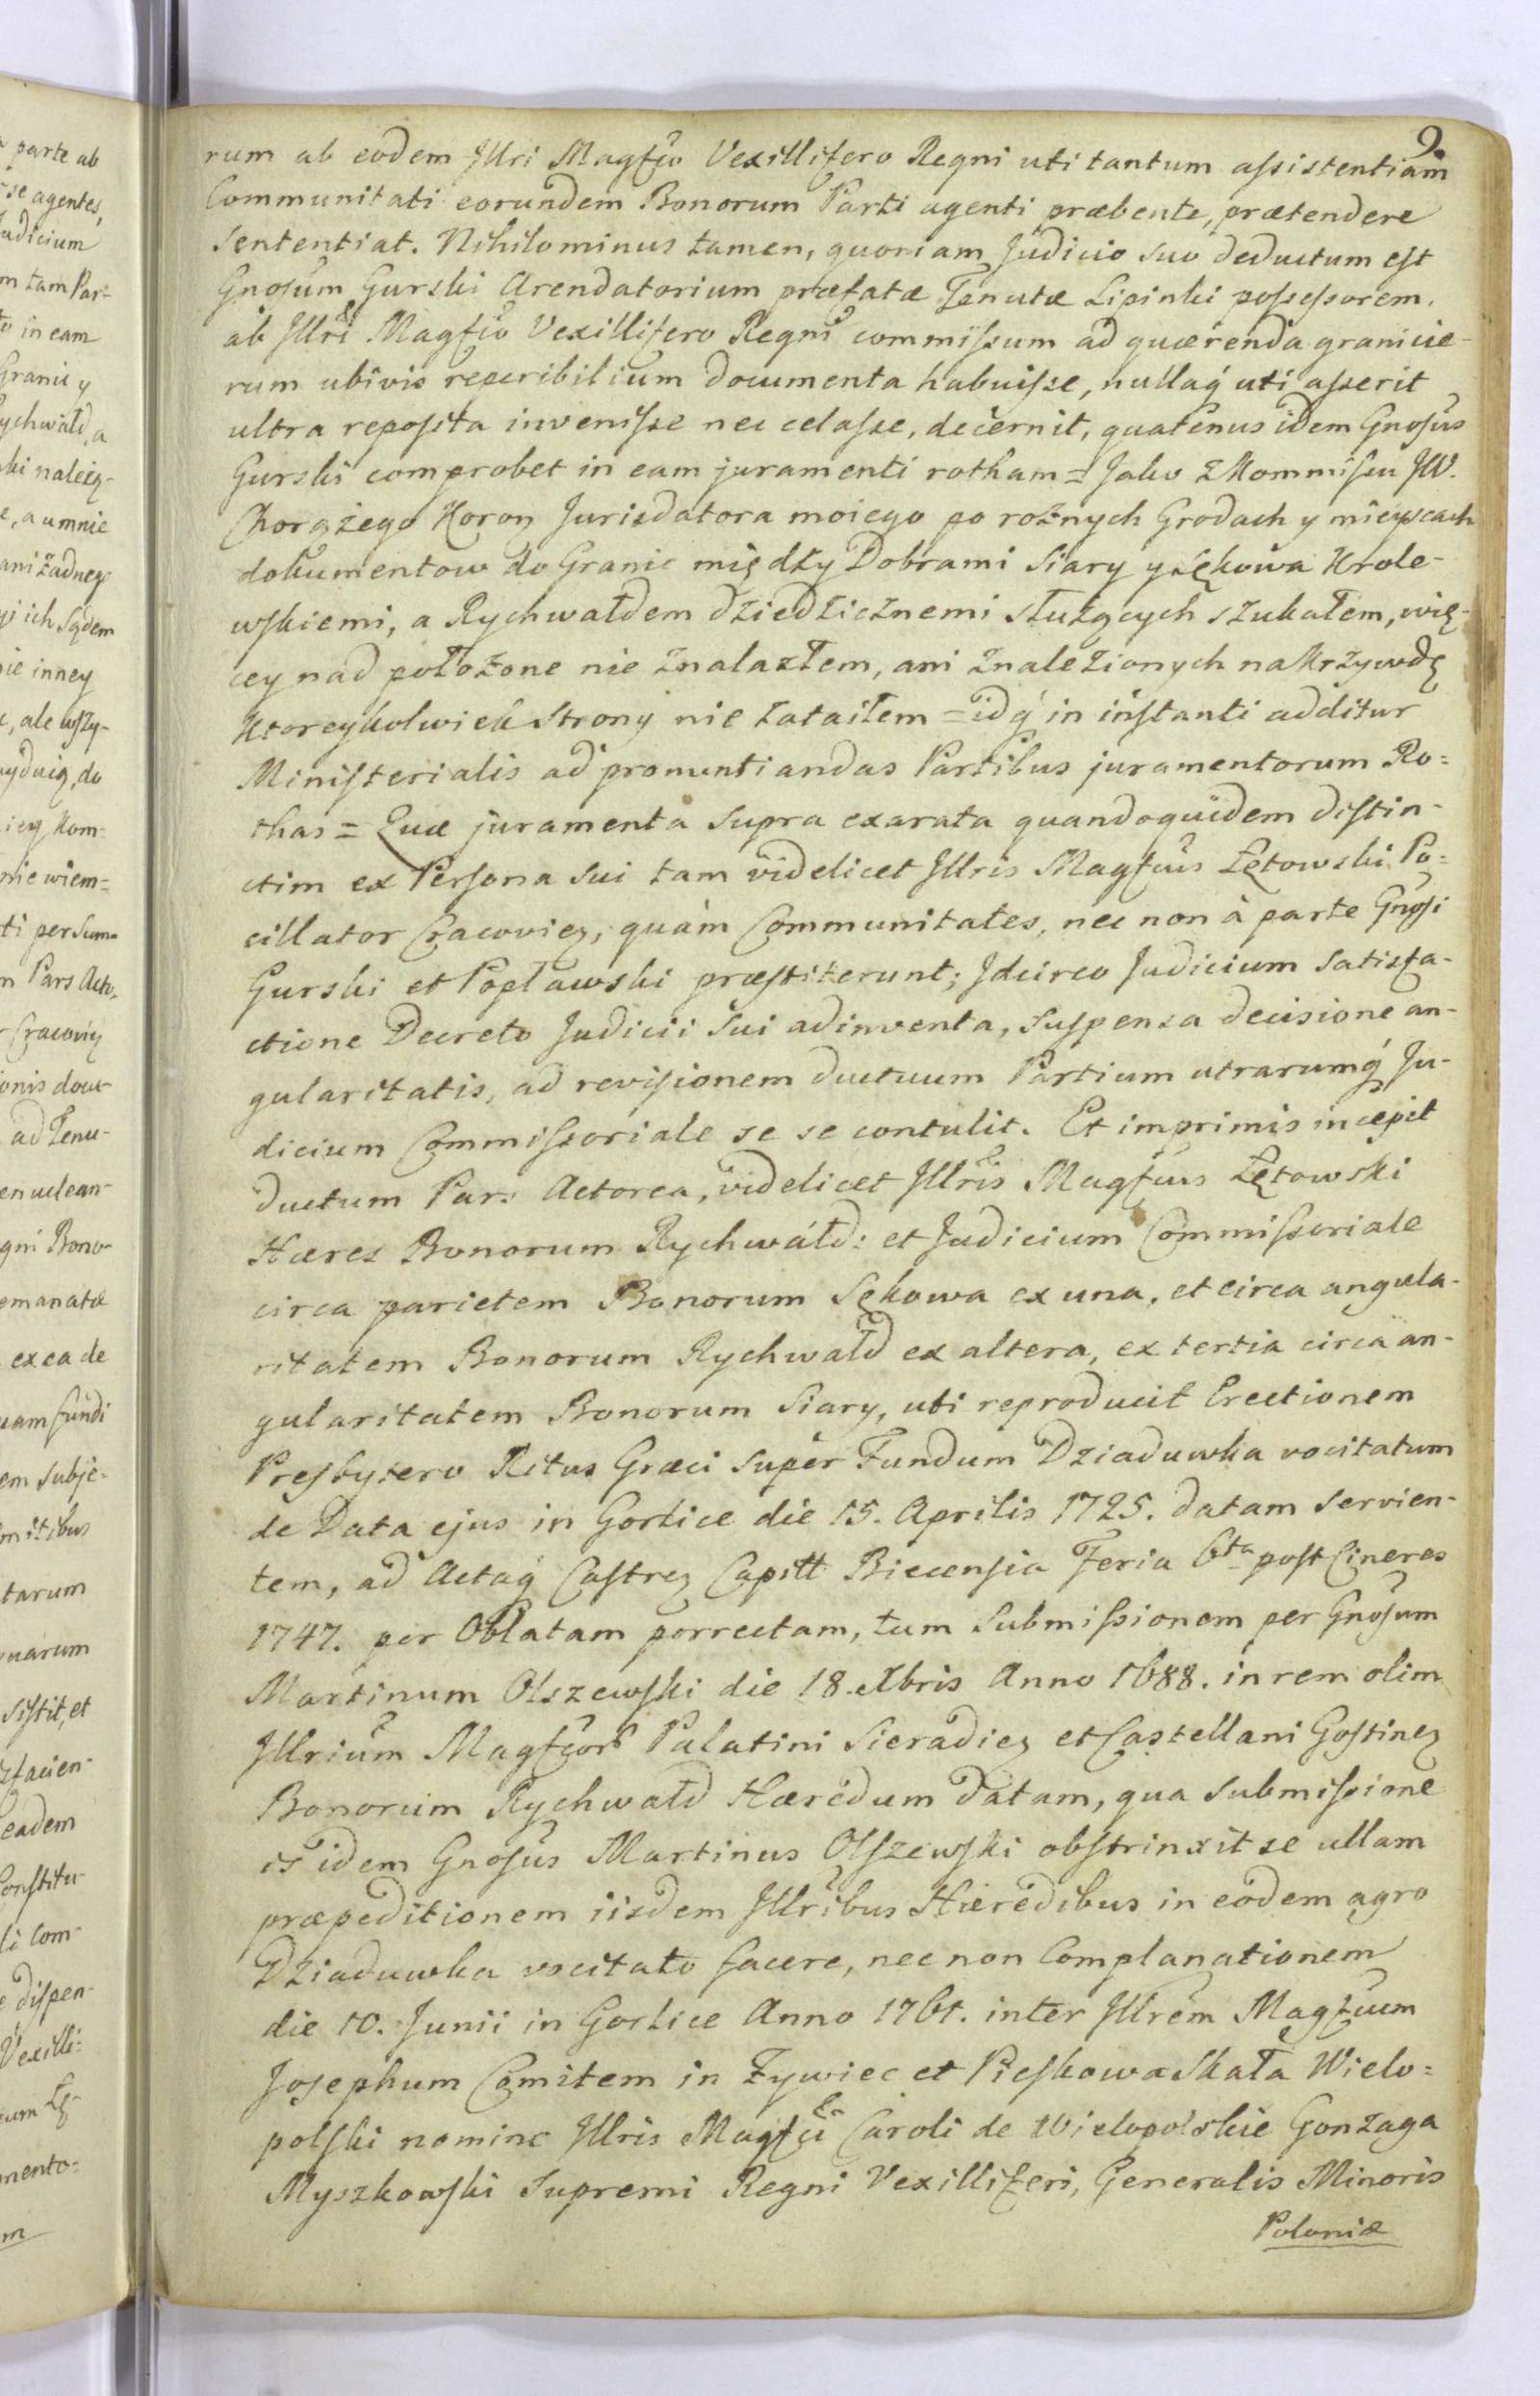 9.
rum ab eodem Jllri Magfco Vexillifero Regni uti tantum assistentiam
Communitati eorundem Bonorum Parti agenti præbente, prætendere
sententiat. Nihilominus tamen, quoniam Judicio suo deductum est
Gnosum Gurski Arendatorium præfatæ Tenutæ Lipinki possessorem,
ab Jllri Magfco Vexillifero Regni commissum ad quærenda granicie-
rum ubivis reperibilium documenta habuisse, nullaq́ uti asserit
ultra reposita invenisse nec celasse, decernit, quatenus idem Gnosus
Gurski comprobet in eam juramenti rotham = Jako z Kommissu JW.
Chorążego Koron Jurisdatora moiego po rożnych Grodach y mieyscach
dokumentow do Granic między Dobrami Siary y Sękowa Krole-
wskiemi, a Rychwałdem dziedzicznemi służących szukałem, wię-
cey nad położone nie znalazłem, ani znalezionych na krzywdę
ktoreykolwiek strony nie zataiłem = idq́ in instanti additur
Ministerialis ad pronuntiandas Partibus juramentorum Ro=
thas = Quæ juramenta supra exarata quandoquidem distin-
ctim ex Persona sui tam videlicet Jllris Magfcus Łętowski Po=
cillator Cracovien, quàm Communitates, nec non à parte Gnosi
Gurski et Popławski præstiterunt; Jdcirco Judicium satisfa-
ctione Decreto Judicii sui adinventa, suspensa decisione an-
gularitatis, ad revisionem ductuum Partium utrarumq́ Ju-
dicium Commissoriale se se contulit. Et imprimis incepit
ductum Pars Actorea, videlicet Jllris Magfcus Łętowski
Hæres Bonorum Rychwałd: et Judicium Commissoriale
circa parietem Bonorum Sękowa ex una, et circa angula-
ritatem Bonorum Rychwałd ex altera, ex tertia circa an-
gularitatem Bonorum Siary, uti reproducit Erectionem
Presbytero Ritus Græci super Fundum Dziaduwka vocitatum
de Data ejus in Gorlice die 15. Aprilis 1725. datam servien-
tem, ad Actaq́ Castren Capitl Biecensia Feria 6ta post Cineres
1747. per Oblatam porrectam, tum Submissionem per Gnosum
Martinum Olszewski die 18. Xbris Anno 1688. in rem olim
Jllrium Magfcor Palatini Sieradien et Castellani Gostinen
Bonorum Rychwałd Hæredum datam, qua submissione
is idem Gnosus Martinus Olszewski obstrinxit se ullam
præpeditionem iisdem Jllribus Hæredibus in eodem agro
Dziaduwka vocitato facere, nec non Complanationem
die 10. Junii in Gorlice Anno 1761. inter Jllrem Magfcum
Josephum Comitem in Żywiec et Pieskowa Skała Wielo=
polski nomine Jllris Magfci Caroli de Wielopolskie Gonzaga
Myszkowski Supremi Regni Vexilliferi, Generalis Minoris
Poloniæ